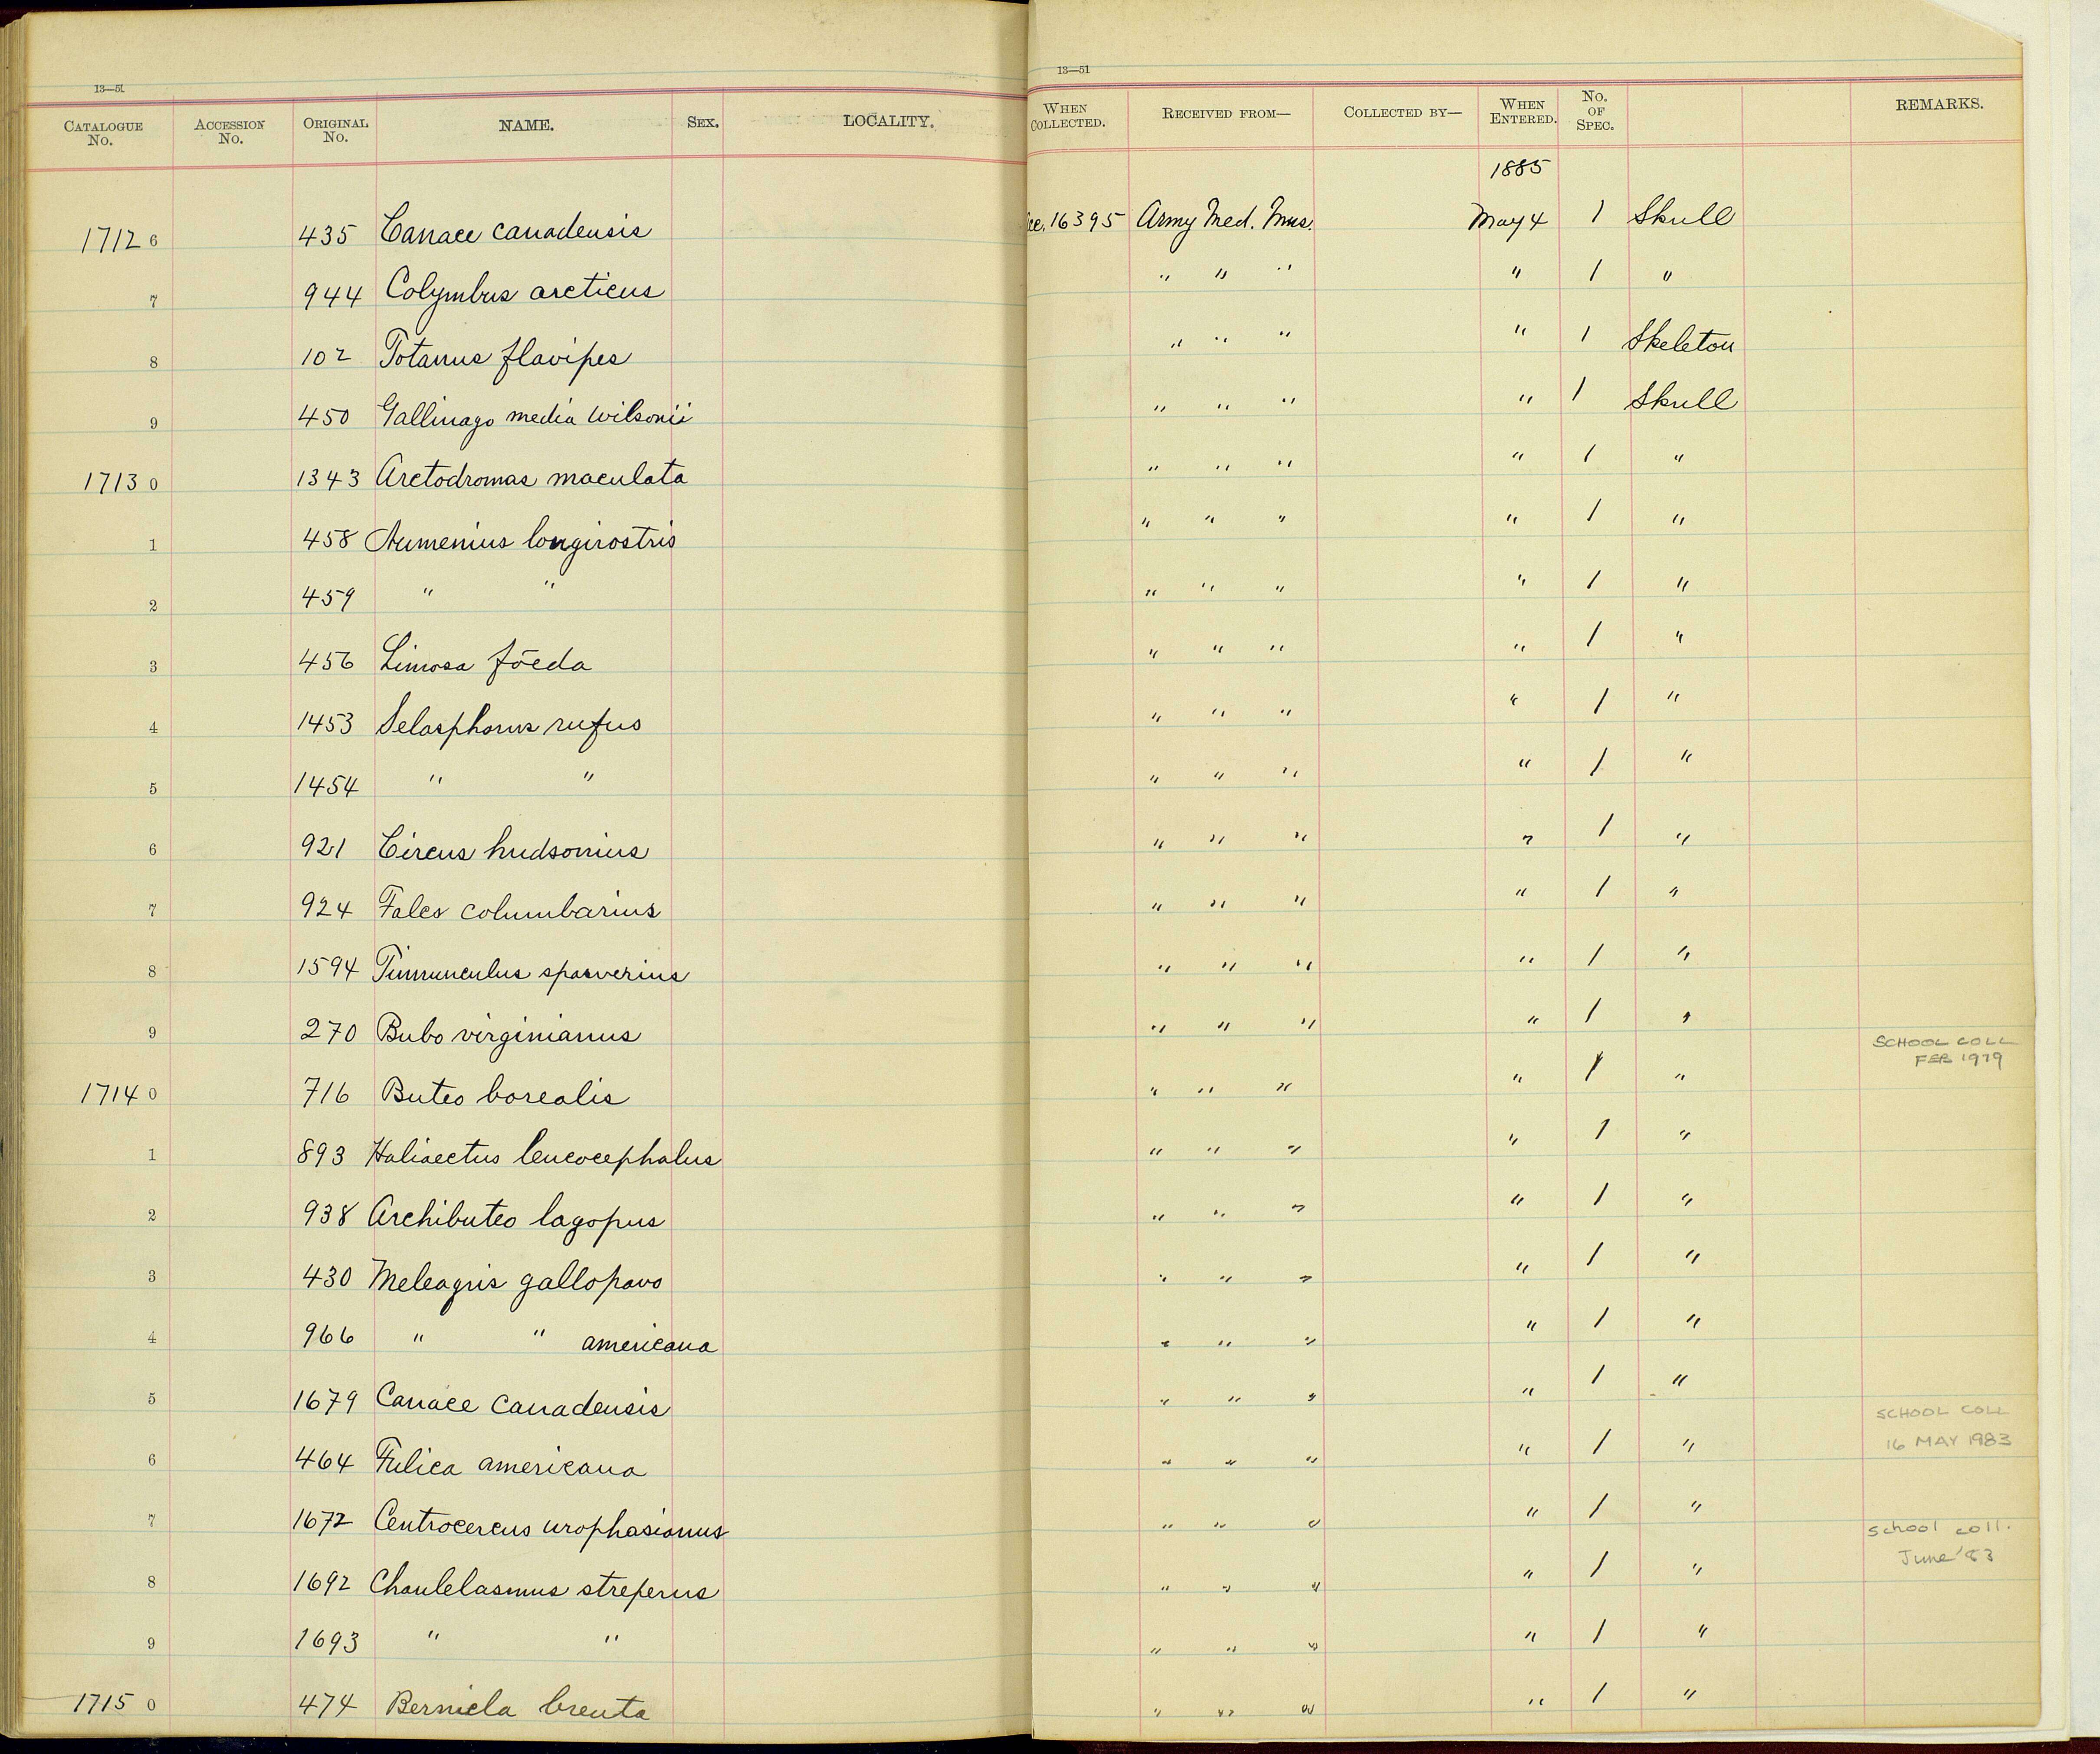 13—51
13—51
CATALOGUE No. ACCESSION No. ORIGINAL No. NAME. SEX. LOCALITY. WHEN COLLECTED. RECEIVED FROM— COLLECTED BY— WHEN ENTERED. No. OF SPEC. REMARKS.
1885
1712 6 435 Canace canadensis cc. 16395 Army Med. Mus. May 4 1 Skull
7 944 Colymbus arcticus " " " " 1 "
8 102 Totanus flavipes " " " " 1 Skeleton
9 450 Gallinago media wilsonii " " " " 1 Skull
1713 0 1343 Arctodromas maculata " " " " 1 "
1 458 Numenius longirostris " " " " 1 "
2 459 " " " " " " 1 "
3 456 Limosa fōeda " " " " 1 "
4 1453 Selasphorus rufus " " " " 1 "
5 1454 " " " " " " 1 "
6 921 Circus hudsonius " " " " 1 "
7 924 Falco columbarius " " " " 1 "
8 1594 Tinnunculus sparverius " " " " 1 "
9 270 Bubo virginianus " " " " 1 "
SCHOOL COLL
FEB 1979
1714 0 716 Buteo borealis " " " " 1 "
1 893 Haliaectus leucocephalus " " " " 1 "
2 938 Archibuteo lagopus " " " " 1 "
3 430 Meleagris gallopavo " " " " 1 "
4 966 " " americana " " " " 1 "
5 1679 Canace canadensis " " " " 1 "
SCHOOL COLL
16 MAY 1983
6 464 Fulica americana " " " " 1 "
7 1672 Centrocercus urophasianus " " " " 1 "
school coll.
June '83
8 1692 Chaulelasmus streperus " " " " 1 "
9 1693 " " " " " " 1 "
1715 0 474 Bernicla brenta " " " " 1 "